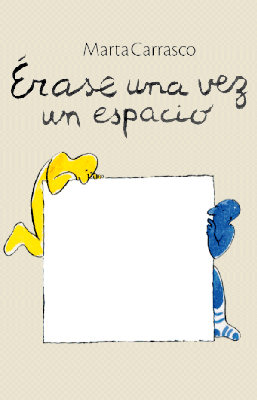 Marta Carrasco
Érase una vez
un espacio